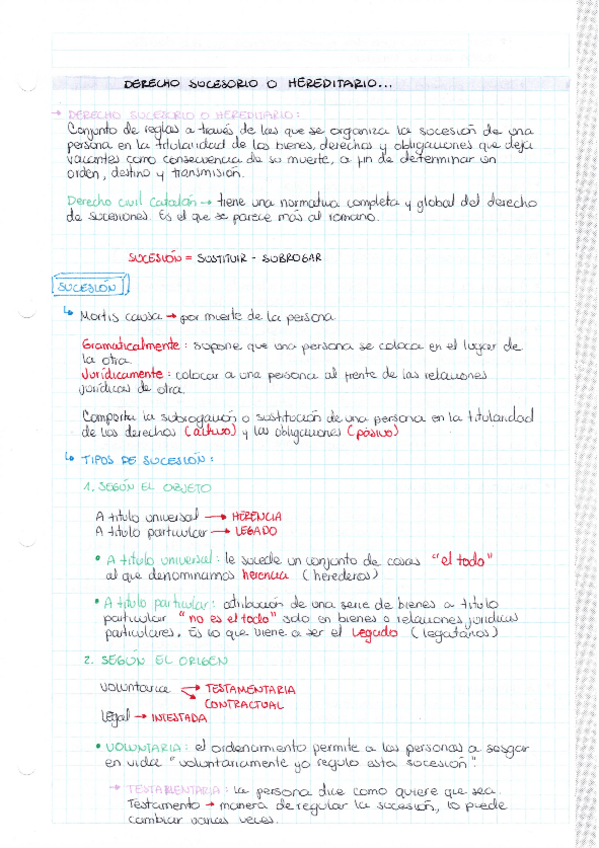 DERECHO SUCESORIO O HEREDITARIO...
→ DERECHO SUCESORIO O HEREDITARIO:
Conjunto de reglas a través de las que se organiza la sucesión de una
persona en la titularidad de los bienes, derechos y obligaciones que deja
vacantes como consecuencia de su muerte, a fin de determinar un
orden, destino y transmisión.
Derecho civil Catalán → tiene una normativa completa y global del derecho
de sucesiones. Es el que se parece más al romano.
SUCESIÓN = SUSTITUIR - SUBROGAR
SUCESIÓN
↳ Mortis causa → por muerte de la persona
Gramaticalmente: supone que una persona se coloca en el lugar de
la otra.
Jurídicamente: colocar a una persona al frente de las relaciones
jurídicas de otra.
Comporta la subrogación o sustitución de una persona en la titularidad
de los derechos (activo) y las obligaciones (pasivo)
↳ TIPOS DE SUCESIÓN:
1. SEGÚN EL OBJETO
A titulo universal → HERENCIA
A titulo particular → LEGADO
• A titulo universal: le sucede un conjunto de cosas "el todo"
al que denominamos herencia (herederos)
• A titulo particular: atribución de una serie de bienes a titulo
particular "no es el todo" solo en bienes o relaciones jurídicas
particulares. Es lo que viene a ser el legado (legatarios)
2. SEGÚN EL ORIGEN
Voluntaria → TESTAMENTARIA
→ CONTRACTUAL
Legal → INTESTADA
• VOLUNTARIA: el ordenamiento permite a las personas a
en vida "voluntariamente yo regulo esta sucesión".
→ TESTAMENTARIA: la persona dice como quiere que sea.
Testamento → manera de regular la sucesión, lo puede
cambiar varias veces.